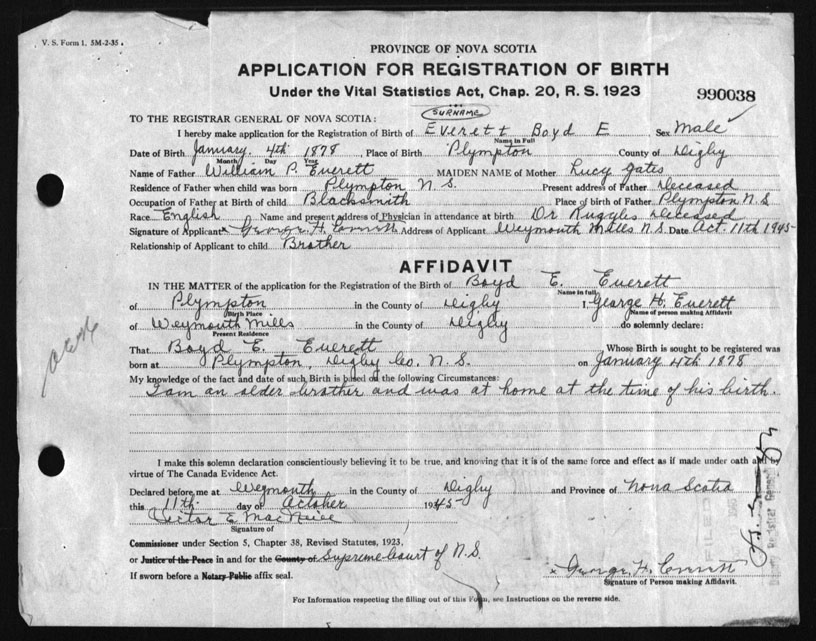 V. S. Form 1. 5M-2-35.
PROVINCE OF NOVA SCOTIA
APPLICATION FOR REGISTRATION OF BIRTH
Under the Vital Statistics Act, Chap. 20, R. S. 1923
990038
TO THE REGISTRAR GENERAL OF NOVA SCOTIA:
SURNAME
I hereby make application for the Registration of Birth of Everett Boyd E Sex Male
Name in Full
Date of Birth January 4th 1878, Place of Birth Plympton County of Digby
Month Day Year
Name of Father William P. Everett MAIDEN NAME of Mother Lucy Gates
Residence of Father when child was born Plympton N.S. Present address of Father Deceased
Occupation of Father at Birth of child Blacksmith Place of birth of Father Plympton N.S
Race English Name and present address of Physician in attendance at birth Dr Ruggles Deceased
Signature of Applicant x George H. Everett Address of Applicant Weymouth Mills N.S. Date Oct. 11th 1945
Relationship of Applicant to child Brother
AFFIDAVIT
IN THE MATTER of the application for the Registration of the Birth of Boyd E. Everett
Name in full
of Plympton in the County of Digby I, George H. Everett
Birth Place Name of person making Affidavit
of Weymouth Mills in the County of Digby do solemnly declare:
Present Residence
That Boyd E. Everett Whose Birth is sought to be registered was
born at Plympton, Digby Co. N.S. on January 4th 1878
My knowledge of the fact and date of such Birth is based on the following Circumstances:
I am an older brother and was at home at the time of his birth.
I make this solemn declaration conscientiously believing it to be true, and knowing that it is of the same force and effect as if made under oath and by
virtue of The Canada Evidence Act.
Declared before me at Weymouth in the County of Digby and Province of Nova Scotia
this 11th day of October 1945
Victor E MacNeill
Signature of
Commissioner under Section 5, Chapter 38, Revised Statutes, 1923,
or Justice of the Peace in and for the County of Supreme Court of N.S.
If sworn before a Notary Public affix seal.
x George H. Everett
Signature of Person making Affidavit.
For Information respecting the filling out of this Form, see Instructions on the reverse side.